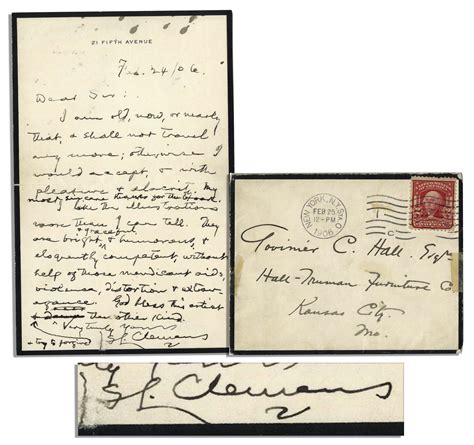 21 FIFTH AVENUE
Feb. 24/06.
Dear Sir:
I am old, now, or nearly
that, & shall not travel
any more; otherwise I
would accept, & with
pleasure & alacrity. My
most sincere thanks for the book.
I like the illustrations
more than I can tell. They
& graceful,
are bright, & humorous, &
eloquently competent, without
help of those mendicant aids,
violence, distortion & extrav-
agance. God bless this artist
& damn the other kind.
Very truly yours
& try to forgive
S L. Clemens
NEW YORK, N.Y. STA. O
FEB 25
12-PM
1906
C. Hall, Esqr
Hall-Truman Furniture Co
Kansas City
Mo.
S L. Clemens